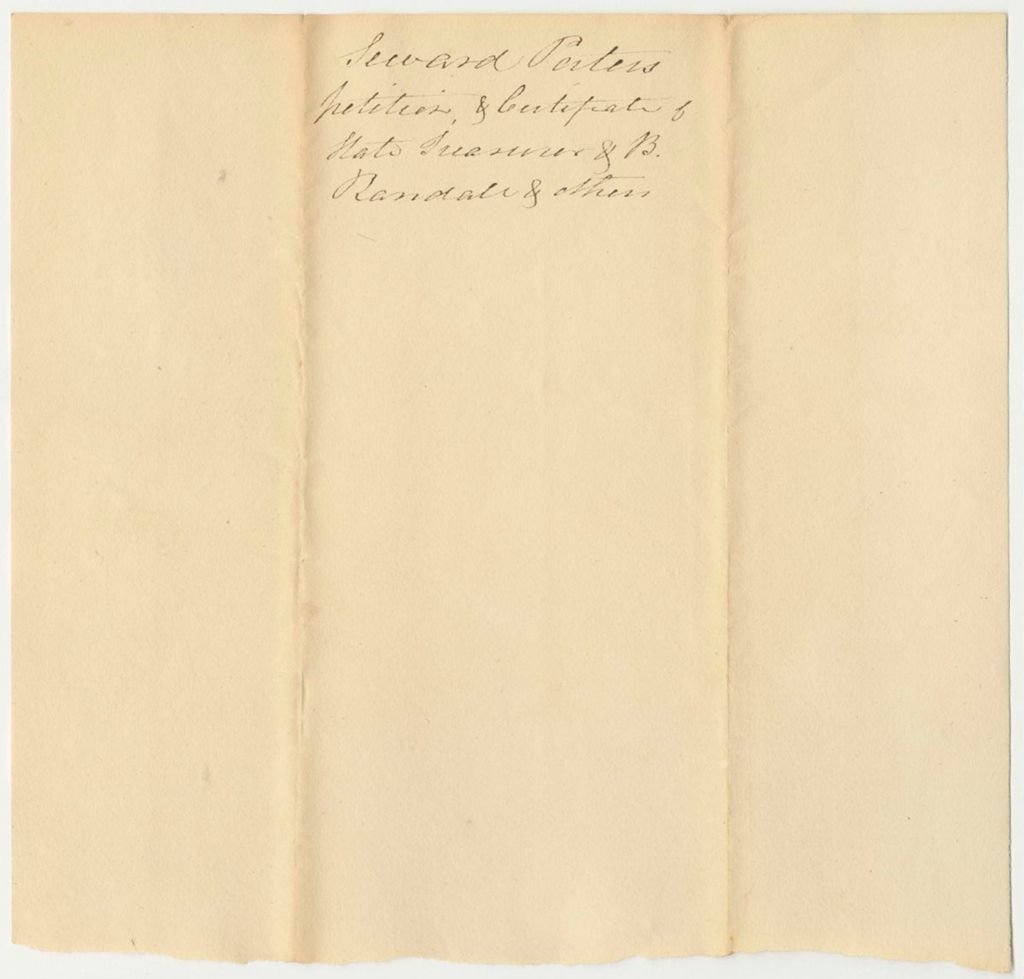 Seward Porters
petition, & Certificate of
State Treasurer & B.
Randall & others